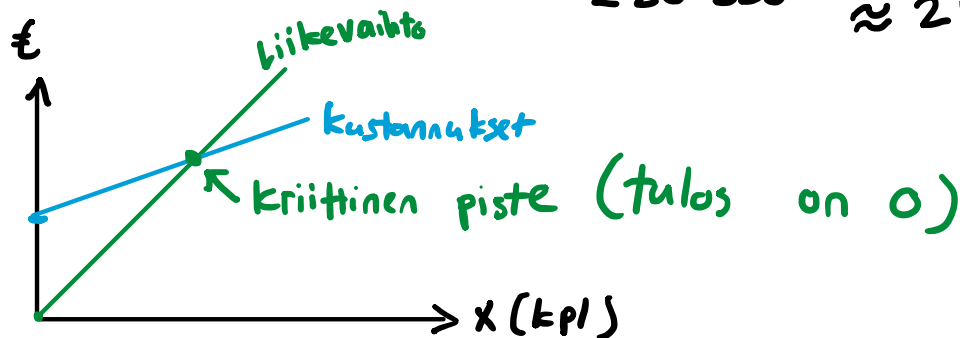 ≈ 2
€
Liikevaihto
kustannukset
kriittinen piste (tulos on 0)
x (kpl)